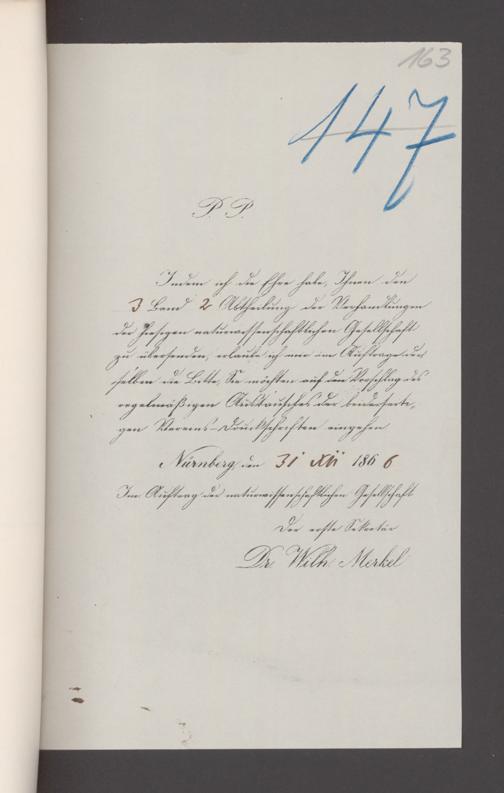 163
147
P. P.
Indem ich die Ehre habe, Ihnen den
3 Band 2 Abtheilung der Verhandlungen
der hiesigen naturwissenschaftlichen Gesellschaft
zu übersenden, erlaube ich mir im Auftrage der
selben die Bitte, Sie möchten auf den Vorschlag des
regelmäßigen Austausches der beiderseiti-
gen Vereins-Druckschriften eingehen
Nürnberg, den 31 XII 1866
Im Auftrag der naturwissenschaftlichen Gesellschaft
Der erste Sekretär
Dr. Wilh. Merkel